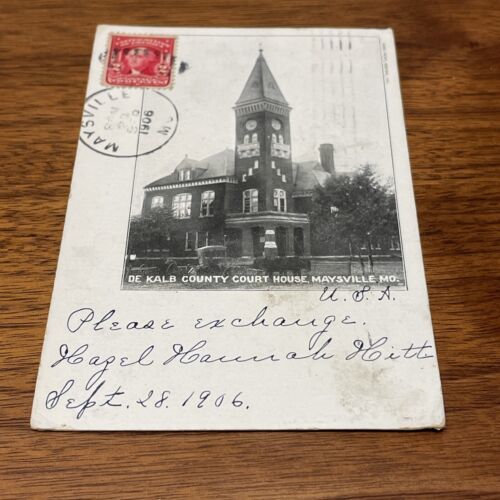 MAYSVILLE
MO.
1906
DE KALB COUNTY COURT HOUSE, MAYSVILLE MO.
U. S. A.
Please exchange.
Hazel Hannah Hitt
Sept. 28. 1906.